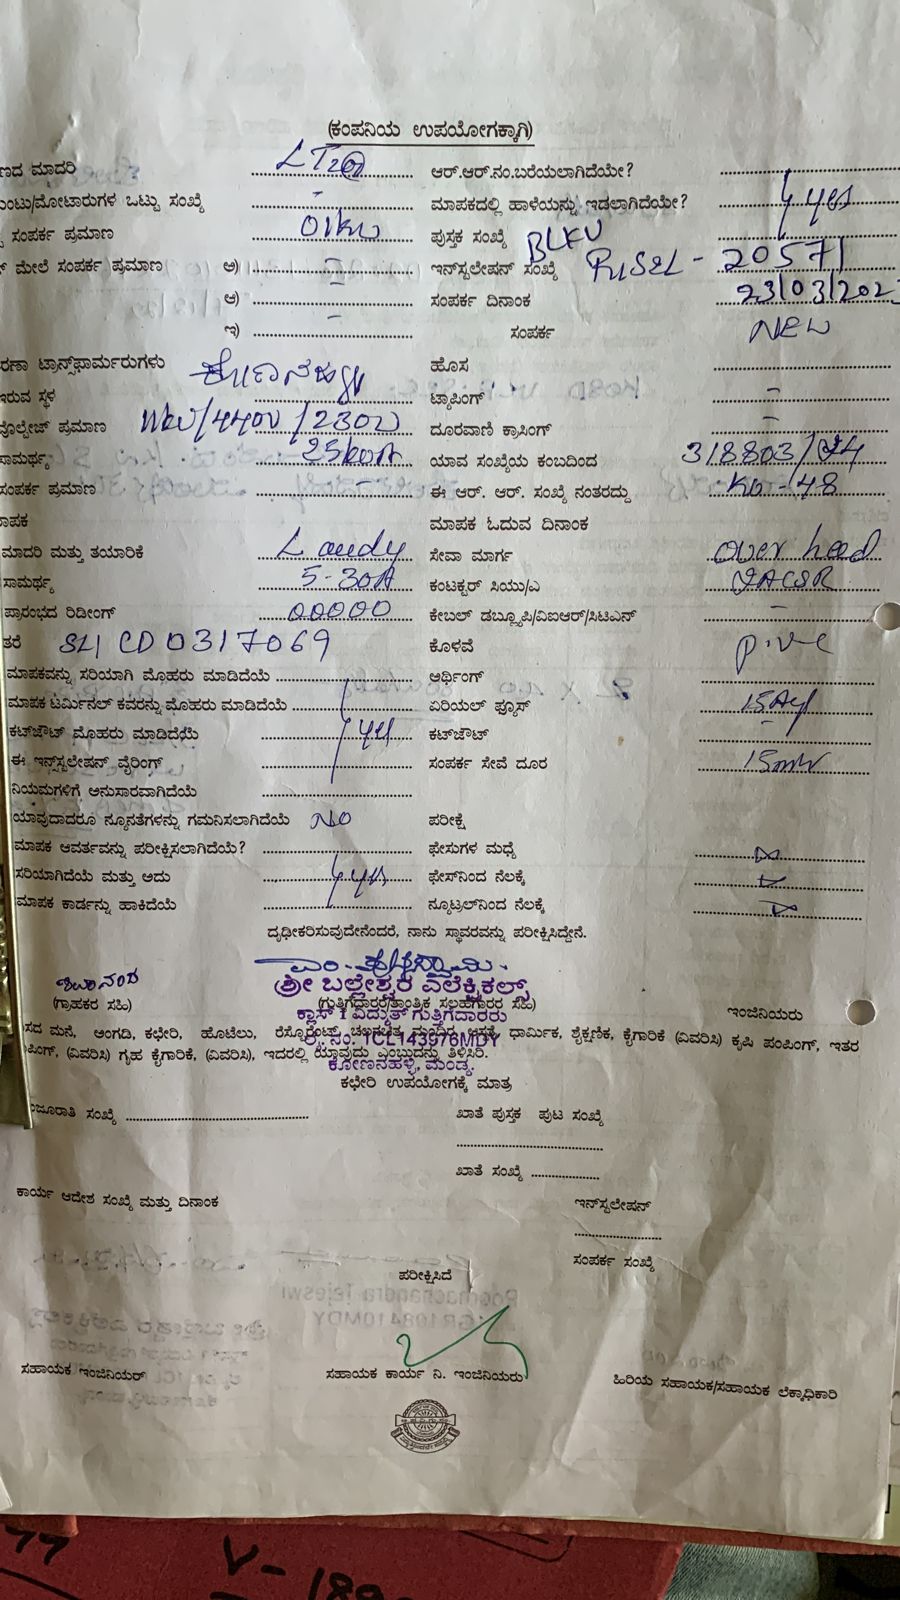 (ಕಂಪನಿಯ ಉಪಯೋಗಕ್ಕಾಗಿ)
ಣದ ಮಾದರಿ LT2 ಆರ್.ಆರ್.ನಂ.ಬರೆಯಲಾಗಿದೆಯೇ?
ಮೋಟಾರುಗಳ ಒಟ್ಟು ಸಂಖ್ಯೆ - ಮಾಪಕದಲ್ಲಿ ಹಾಳೆಯನ್ನು ಇಡಲಾಗಿದೆಯೇ? yes
ಸಂಪರ್ಕ ಪ್ರಮಾಣ 01kw ಪುಸ್ತಕ ಸಂಖ್ಯೆ
ಮೇಲೆ ಸಂಪರ್ಕ ಪ್ರಮಾಣ ಅ) - ಇನ್‌ಸ್ಟಲೇಷನ್ ಸಂಖ್ಯೆ 20571
ಆ) - ಸಂಪರ್ಕ ದಿನಾಂಕ 23/03/202
ಇ) - ಸಂಪರ್ಕ NEW
ರಣಾ ಟ್ರಾನ್ಸ್‌ಫಾರ್ಮರುಗಳು ಹೊಸ
ಇರುವ ಸ್ಥಳ ಟ್ಯಾಪಿಂಗ್ -
ವೋಲ್ಟೇಜ್ ಪ್ರಮಾಣ 11kv/440v/230v ದೂರವಾಣಿ ಕ್ರಾಸಿಂಗ್ -
ಸಾಮರ್ಥ್ಯ 25kvA ಯಾವ ಸಂಖ್ಯೆಯ ಕಂಬದಿಂದ 318803/
ಸಂಪರ್ಕ ಪ್ರಮಾಣ - ಈ ಆರ್. ಆರ್. ಸಂಖ್ಯೆ ನಂತರದ್ದು -48
ಾಪಕ ಮಾಪಕ ಓದುವ ದಿನಾಂಕ
ಮಾದರಿ ಮತ್ತು ತಯಾರಿಕೆ ಸೇವಾ ಮಾರ್ಗ over head
ಸಾಮರ್ಥ್ಯ 5-30A ಕಂಟಕ್ಟರ್ ಸಿಯು/ಎ
ಪ್ರಾರಂಭದ ರಿಡೀಂಗ್ 00000 ಕೇಬಲ್ ಡಬ್ಲ್ಯೂಪಿ/ವಿಐಆರ್/ಸಿಟಿಎನ್ -
ತರೆ CD0317069 ಕೊಳವೆ p.v.c
ಮಾಪಕವನ್ನು ಸರಿಯಾಗಿ ಮೊಹರು ಮಾಡಿದೆಯೆ ಅರ್ಥಿಂಗ್
ಮಾಪಕ ಟರ್ಮಿನಲ್ ಕವರನ್ನು ಮೊಹರು ಮಾಡಿದೆಯೆ ಏರಿಯಲ್ ಫ್ಯೂಸ್
ಕಟ್‌ಔಟ್ ಮೊಹರು ಮಾಡಿದೆಯೆ yes ಕಟ್‌ಔಟ್ -
ಈ ಇನ್‌ಸ್ಟಲೇಷನ್ ವೈರಿಂಗ್ ಸಂಪರ್ಕ ಸೇವೆ ದೂರ
ನಿಯಮಗಳಿಗೆ ಅನುಸಾರವಾಗಿದೆಯೆ
ಯಾವುದಾದರೂ ನ್ಯೂನತೆಗಳನ್ನು ಗಮನಿಸಲಾಗಿದೆಯೆ NO ಪರೀಕ್ಷೆ
ಮಾಪಕ ಆವರ್ತವನ್ನು ಪರೀಕ್ಷಿಸಲಾಗಿದೆಯೆ? ಫೇಸುಗಳ ಮಧ್ಯೆ
ಸರಿಯಾಗಿದೆಯೆ ಮತ್ತು ಅದು yes ಫೇಸ್‌ನಿಂದ ನೆಲಕ್ಕೆ
ಮಾಪಕ ಕಾರ್ಡನ್ನು ಹಾಕಿದೆಯೆ ನ್ಯೂಟ್ರಲ್‌ನಿಂದ ನೆಲಕ್ಕೆ
ದೃಢೀಕರಿಸುವುದೇನೆಂದರೆ, ನಾನು ಸ್ಥಾವರವನ್ನು ಪರೀಕ್ಷಿಸಿದ್ದೇನೆ.
ಶಿವಾನಂದ
ಶ್ರೀ ಬಲ್ಲೇಶ್ವರ ಎಲೆಕ್ಟ್ರಿಕಲ್ಸ್
(ಗ್ರಾಹಕರ ಸಹಿ) (ಗುತ್ತಿಗೆದಾರರ/ತಾಂತ್ರಿಕ ಸಲಹಗಾರರ ಸಹಿ) ಇಂಜಿನಿಯರು
ಕ್ಲಾಸ್ 1 ವಿದ್ಯುತ್ ಗುತ್ತಿಗೆದಾರರು
ಸದ ಮನೆ, ಅಂಗಡಿ, ಕಛೇರಿ, ಹೊಟೆಲು, ರೆಸ್ಟೋರೆಂಟ್, ಚಲನಚಿತ್ರ ಮಂದಿರ, ಆಸ್ಪತ್ರೆ, ಧಾರ್ಮಿಕ, ಶೈಕ್ಷಣಿಕ, ಕೈಗಾರಿಕೆ (ವಿವರಿಸಿ) ಕೃಷಿ ಪಂಪಿಂಗ್, ಇತರ
ನಂ: 1CL143976MDY
ಪಿಂಗ್, (ವಿವರಿಸಿ) ಗೃಹ ಕೈಗಾರಿಕೆ, (ವಿವರಿಸಿ), ಇದರಲ್ಲಿ ಯಾವುದು ಎಂಬುದನ್ನು ತಿಳಿಸಿರಿ.
ಕೋಣನಹಳ್ಳಿ, ಮಂಡ್ಯ.
ಕಛೇರಿ ಉಪಯೋಗಕ್ಕೆ ಮಾತ್ರ
ಂಜೂರಾತಿ ಸಂಖ್ಯೆ ಖಾತೆ ಪುಸ್ತಕ ಪುಟ ಸಂಖ್ಯೆ
ಖಾತೆ ಸಂಖ್ಯೆ
ಕಾರ್ಯ ಆದೇಶ ಸಂಖ್ಯೆ ಮತ್ತು ದಿನಾಂಕ ಇನ್‌ಸ್ಟಲೇಷನ್
ಸಂಪರ್ಕ ಸಂಖ್ಯೆ
ಪರೀಕ್ಷಿಸಿದೆ
ಸಹಾಯಕ ಇಂಜಿನಿಯರ್ ಸಹಾಯಕ ಕಾರ್ಯ ನಿ. ಇಂಜಿನಿಯರು ಹಿರಿಯ ಸಹಾಯಕ/ಸಹಾಯಕ ಲೆಕ್ಕಾಧಿಕಾರಿ